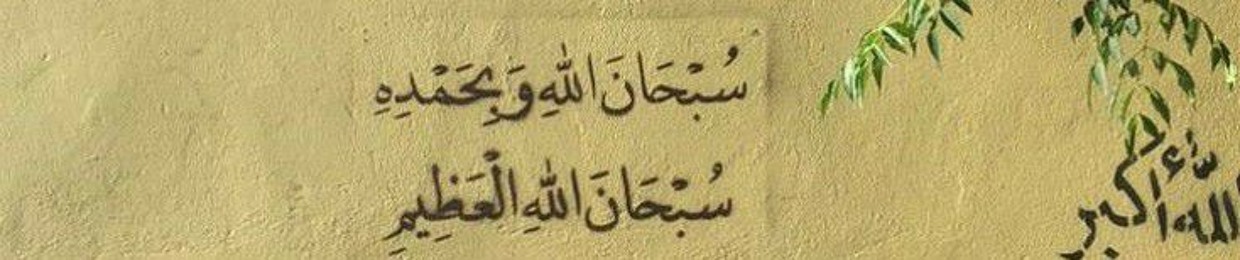 سُبْحَانَ اللهِ وَبِحَمْدِهِ
سُبْحَانَ اللهِ الْعَظِيمِ
اللهُ أكبر